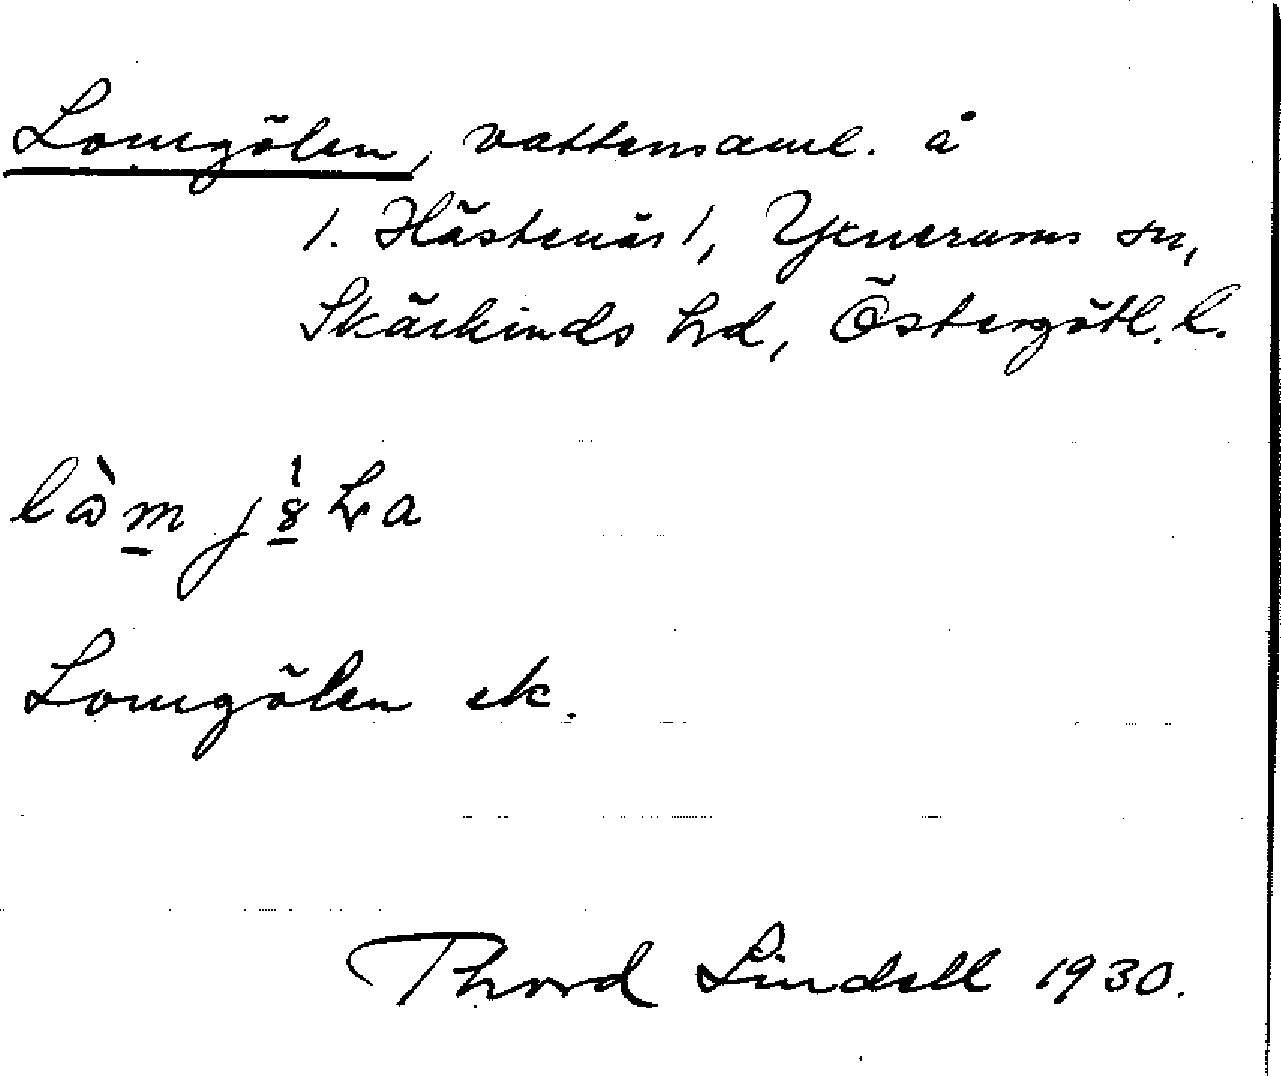 Lomgölen, vattensaml. å
1. Hästenäs 1, Yxnerums sn,
Skärkinds hd, Östergötl. l.
Lomgölen ek.
Thord Lindell 1930.